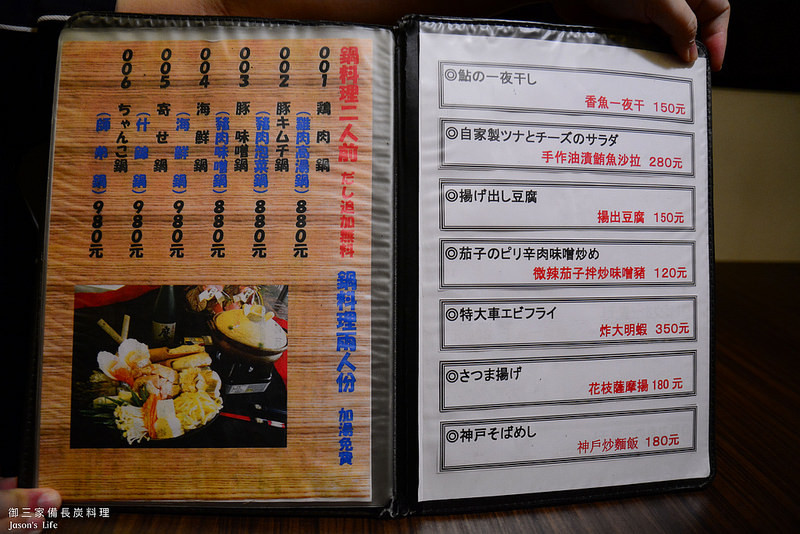 鍋料理二人前 だし追加無料
001 鶏肉鍋
(雞肉高湯鍋) 880元
002 豚キムチ鍋
(豬肉泡菜鍋) 880元
003 豚味噌鍋
(豬肉味噌鍋) 880元
004 海鮮鍋
(海鮮鍋) 980元
005 寄せ鍋
(什錦鍋) 980元
006 ちゃんこ鍋
980元
鍋料理兩人份 加湯免費
◎鮎の一夜干し
香魚一夜干 150元
◎自家製ツナとチーズのサラダ
手作油漬鮪魚沙拉 280元
◎揚げ出し豆腐
揚出豆腐 150元
◎茄子のピリ辛肉味噌炒め
微辣茄子拌炒味噌豬 120元
◎特大車エビフライ
炸大明蝦 350元
◎さつま揚げ
花枝薩摩揚 180元
◎神戸そばめし
神戶炒麵飯 180元
御三家備長炭料理
Jason's Life